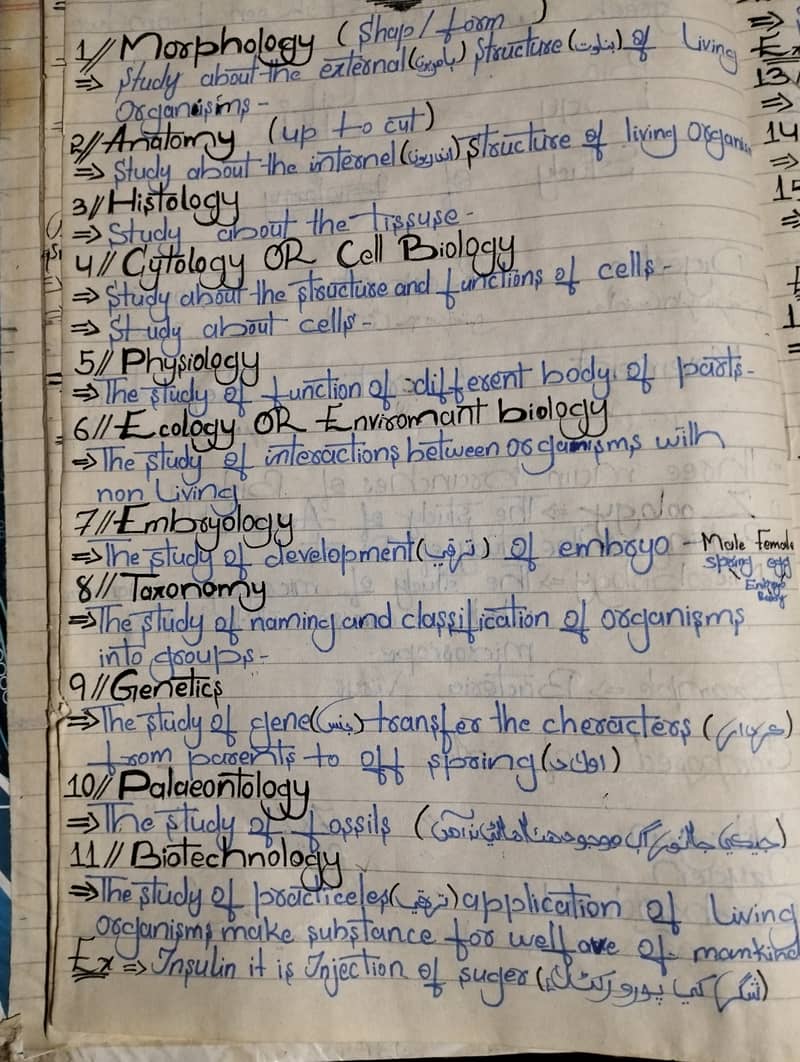 1// Morphology (Shap/form)
⇒ Study about the external (بیرونی) structure (بناوٹ) of living
Organisms -
2// Anatomy (up to cut)
⇒ Study about the internel (اندرونی) structure of living Organi
3// Histology
⇒ Study about the tissuse -
4// Cytology OR Cell Biology
⇒ Study about the structure and functions of cells -
⇒ Study about cells -
5// Physiology
⇒ The study of function of different body of parts -
6// Ecology OR Enviromant biology
⇒ The study of interactions between organisms with
non Living
7// Embryology
⇒ The study of development (ترقی) of embryo - Male Female
egg
8// Taxonomy
⇒ The study of naming and classification of organisms
into groups -
9// Genetics
⇒ The study of gene (جنس) transfer the cheracters
from parents to off spring (اولاد)
10// Palaeontology
⇒ The study of fossils
11// Biotechnology
⇒ The study of (ترقی) application of Living
organisms make substance for welfare of mankind
Ex ⇒ Insulin it is Injection of suger (شگر)
Ex
13
⇒
14
⇒
15
⇒